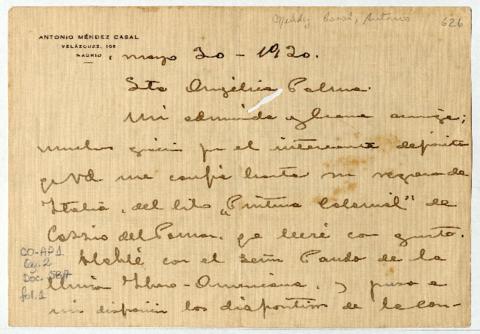 Méndez Casal, Antonio
626
ANTONIO MÉNDEZ CASAL
VELÁZQUEZ, 106
MADRID
, mayo 30 - 1930.
Sta Angélica Palma.
Mi admirada y buena amiga;
muchas gracias por el interesante depósito
q Vd me confía hasta su regreso de
Italia, del libro "Pintura Colonial" de
Cossio del Pomar, qe leeré con gusto.
Hablé con el Señor Pando de la
Unión Ibero-Americana, y puso a
mi disposición los diapositivos de la con-
CO-AP1
Caj.2
Doc. 587
fol.1